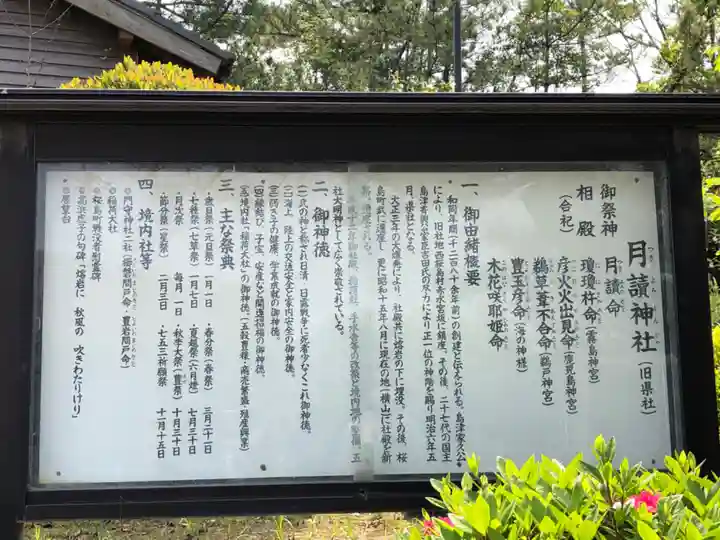 月讀神社(旧県社)
つき よみ じん じゃ
御祭神 月讀命
相殿 瓊瓊杵命(霧島神宮)
(合祀) 彦火火出見命(鹿児島神宮)
鵜草葺不合命(鵜戸神宮)
豊玉彦命(海の神様)
木花咲耶姫命
一、御由緒概要
和同年間(一二八〇余年前)の創建と伝えられる。島津家久公
により、旧社地西桜島村赤水宮坂に鎮座。その後、二十七代の国主
島津斉興公家臣吉田氏の尽力により正一位の神階を賜り明治六年五
月、県社となる。
大正三年の大爆発により、社殿共に熔岩の下に埋没。その後、桜
島町武に遷座し、更に昭和十五年八月に現在の地(横山)に社殿を新
社大明神として広く崇敬されている。
二、御神徳
(一)氏の神と称され日清、日露戦争に死者少なくこれ御神徳。
(二)海上、陸上の交通安全と家内安全の御神徳。
(三)弱き子の健康、学業成就の御神徳。
(四)縁結び、子宝、安産など開運招福の御神徳。
(五)境内社「稲荷大社」の御神徳。(五穀豊穰・商売繁盛・殖産興業)
三、主な祭典
・歳旦祭(元日祭)一月一日 ・春分祭(春祭) 三月二十一日
・七種祭(七草祭)一月七日 ・夏越祭(六月灯) 七月三十日
・月次祭 毎月一日 ・秋季大祭(豊祭) 十月三十日
・節分祭(星祭) 二月三日 ・七五三祈願祭 十一月十五日
四、境内社等
◎門守神社二社(櫛磐間戸命・豊岩間戸命)
◎稲荷大社
◎桜島町戦没者慰霊碑
◎高浜虚子の句碑「熔岩に 秋風の 吹きわたりけり」
◎展望台